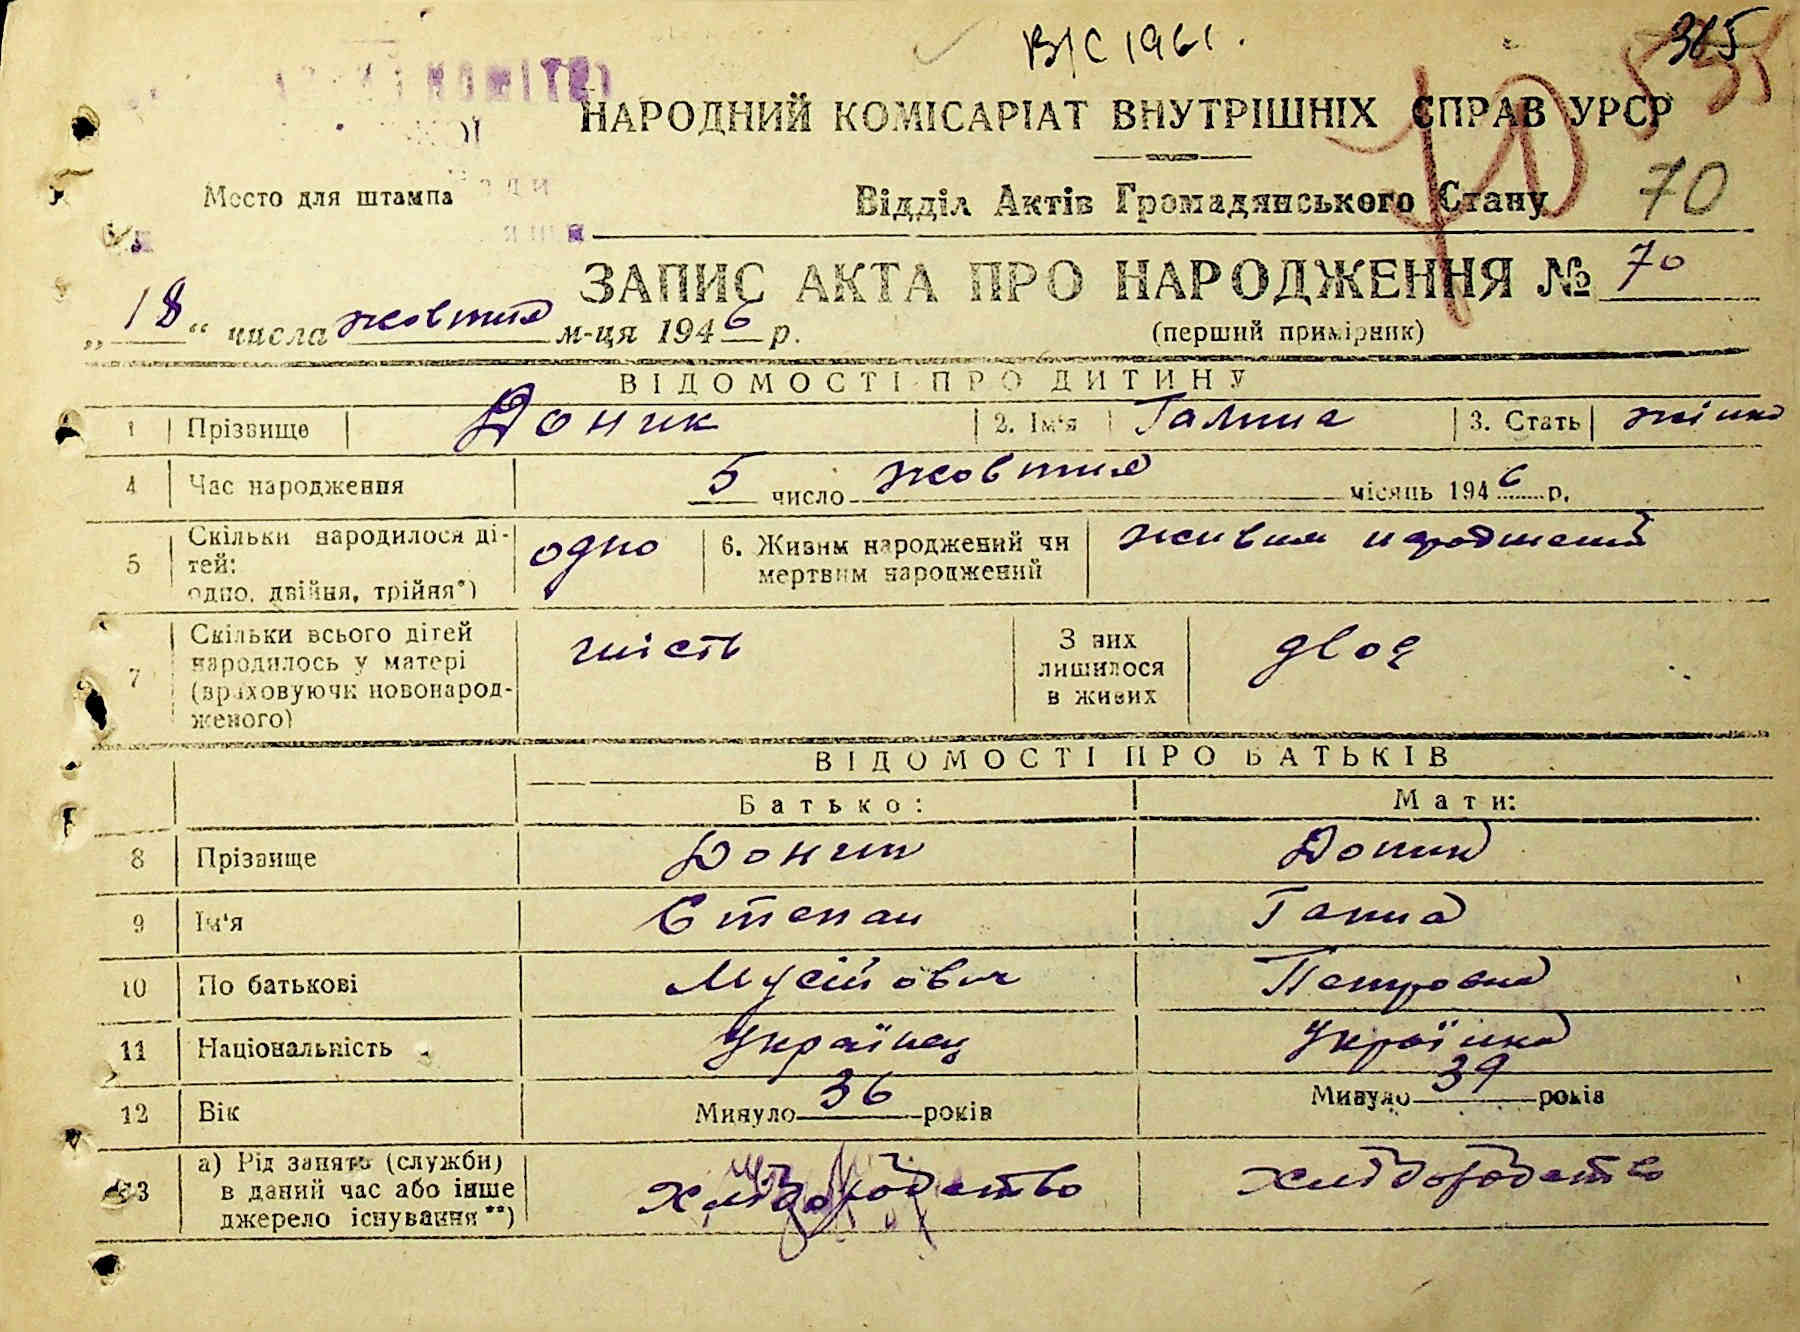 В/С 1961.
365
НАРОДНИЙ КОМІСАРІАТ ВНУТРІШНІХ СПРАВ УРСР
Место для штампа
Відділ Актів Громадянського Стану
70
ЗАПИС АКТА ПРО НАРОДЖЕННЯ № 70
„18“ числа жовтня м-ця 1946 р.
(перший примірник)
ВІДОМОСТІ ПРО ДИТИНУ
1 Прізвище Доник 2. Ім'я Галина 3. Стать жіноч
4 Час народження 5 число жовтня місяць 1946 р.
5 Скільки народилося ді-
тей:
одно, двійня, трійня*) одно
6. Живим народжений чи
мертвим народжений живим народжений
7 Скільки всього дітей
народилось у матері
(враховуючи новонарод-
женого) шість
З них
лишилося
в живих двоє
ВІДОМОСТІ ПРО БАТЬКІВ
Батько: Мати:
8 Прізвище Доник Доник
9 Ім'я Степан Ганна
10 По батькові Мусійович Петровна
11 Національність Українец Українка
12 Вік Минуло 36 років Минуло 39 років
13 а) Рід занять (служби)
в даний час або інше
джерело існування**) хліборобство хліборобство